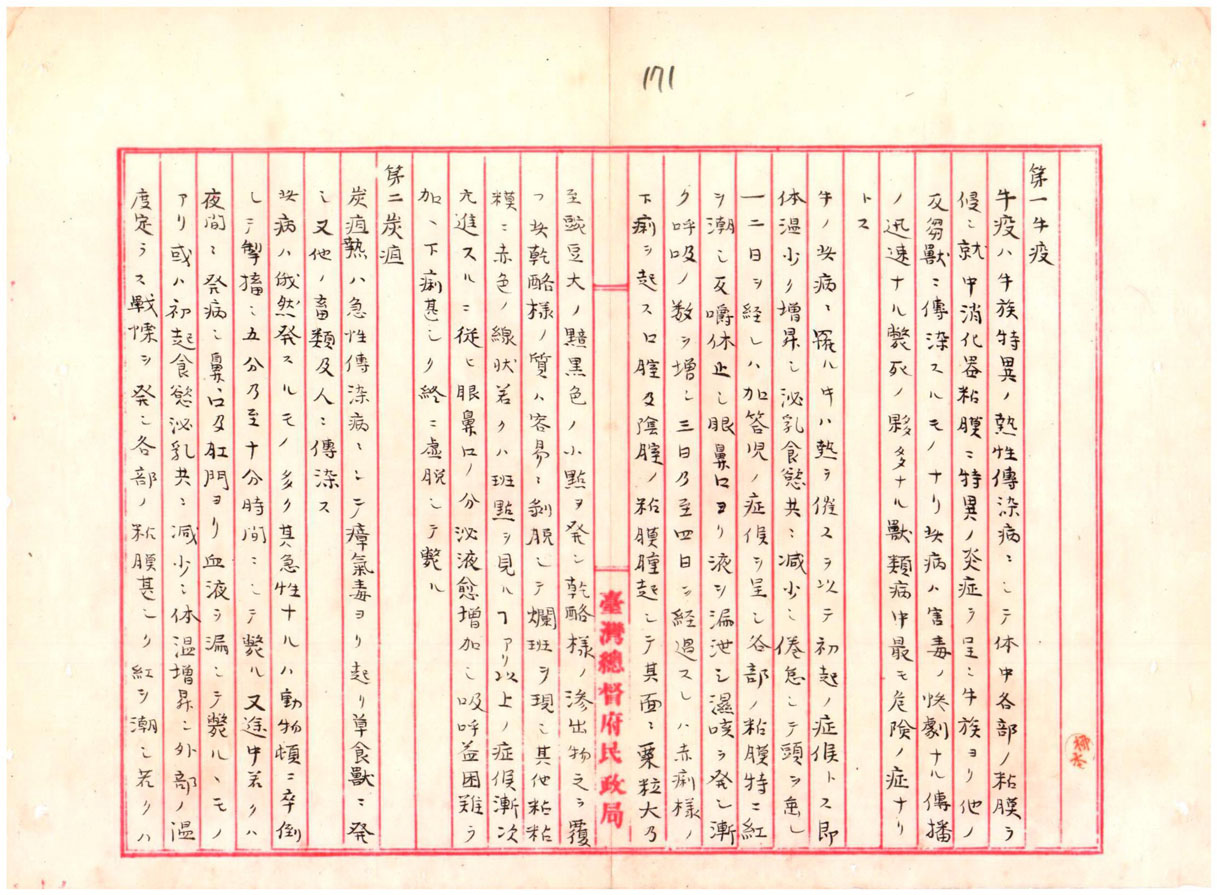 171
第一牛疫
牛疫ハ牛族特異ノ熱性傳染病ニシテ体中各部ノ粘膜ヲ
侵シ就中消化器粘膜ニ特異ノ炎症ヲ呈シ牛族ヨリ他ノ
反芻獣ニ傳染スルモノナリ此病ハ害毒ノ惨劇ナル傳播
ノ迅速ナル斃死ノ夥多ナル獸類病中最モ危険ノ症ナリ
トス
牛ノ此病ニ罹ルヤハ熱ヲ催スヲ以テ初起ノ症候トス即
体温少ク増昇シ泌乳食慾共ニ減少シ倦怠シテ頭ヲ垂レ
一二日ヲ経レハ加答児ノ症候ヲ呈シ各部ノ粘膜特ニ紅
ヲ潮シ反嚼休止シ眼鼻口ヨリ液ヲ漏泄シ濕咳ヲ発シ漸
ク呼吸ノ数ヲ増シ三日乃至四日ヲ経過スレハ赤痢様ノ
下痢ヲ起ス口腔及陰腟ノ粘膜腫起シテ其面ニ粟粒大乃
臺灣總督府民政局
至豌豆大ノ黯黒色ノ小點ヲ発シ乾酪様ノ滲出物之ヲ覆
フ此乾酪様ノ質ハ容易ニ剝脱シテ爛斑ヲ現シ其他粘
膜ニ赤色ノ線状若クハ斑點ヲ見ルヿアリ以上ノ症候漸次
亢進スルニ従ヒ眼鼻口ノ分泌液愈増加シ吸呼益困難ヲ
加ヘ下痢甚シク終ニ虚脱シテ斃ル
第二炭疽
炭疽熱ハ急性傳染病ニシテ瘴氣毒ヨリ起リ草食獸ニ発
シ又他ノ畜類及人ニ傳染ス
此病ハ俄然発スルモノ多ク其急性ナルハ動物頓ニ卒倒
シテ掣搐シ五分乃至十分時間ニシテ斃ル又途中若クハ
夜間ニ発病シ鼻、口及肛門ヨリ血液ヲ漏シテ斃ルヽモノ
アリ或ハ初起食慾泌乳共ニ減少シ体温増昇シ外部ノ温
度定ラス戰慄ヲ発シ各部ノ粘膜甚シク紅ヲ潮シ若クハ